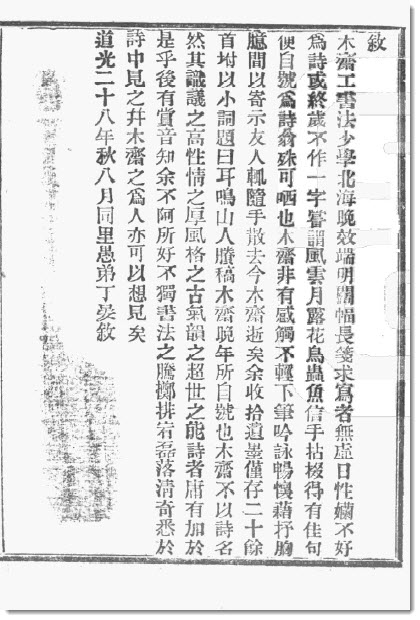 敘
木齋工書法少學北海晚效端明闊幅長箋求寫者無虛日性嬾不好
爲詩或終歲不作一字嘗謂風雲月露花鳥蟲魚信手拈掇得有佳句
便自號爲詩翁殊可哂也木齋非有感觸不輕下筆吟詠暢懷藉抒胸
臆間以寄示友人輒隨手散去今木齋逝矣余收拾遺墨僅存二十餘
首坿以小詞題曰耳鳴山人賸稿木齋晚年所自號也木齋不以詩名
然其識議之高性情之厚風格之古氣韻之超世之能詩者庸有加於
是乎後有賞音知余不阿所好不獨書法之騰擲排宕磊落淸奇悉於
詩中見之幷木齋之爲人亦可以想見矣
道光二十八年秋八月同里愚弟丁晏敘